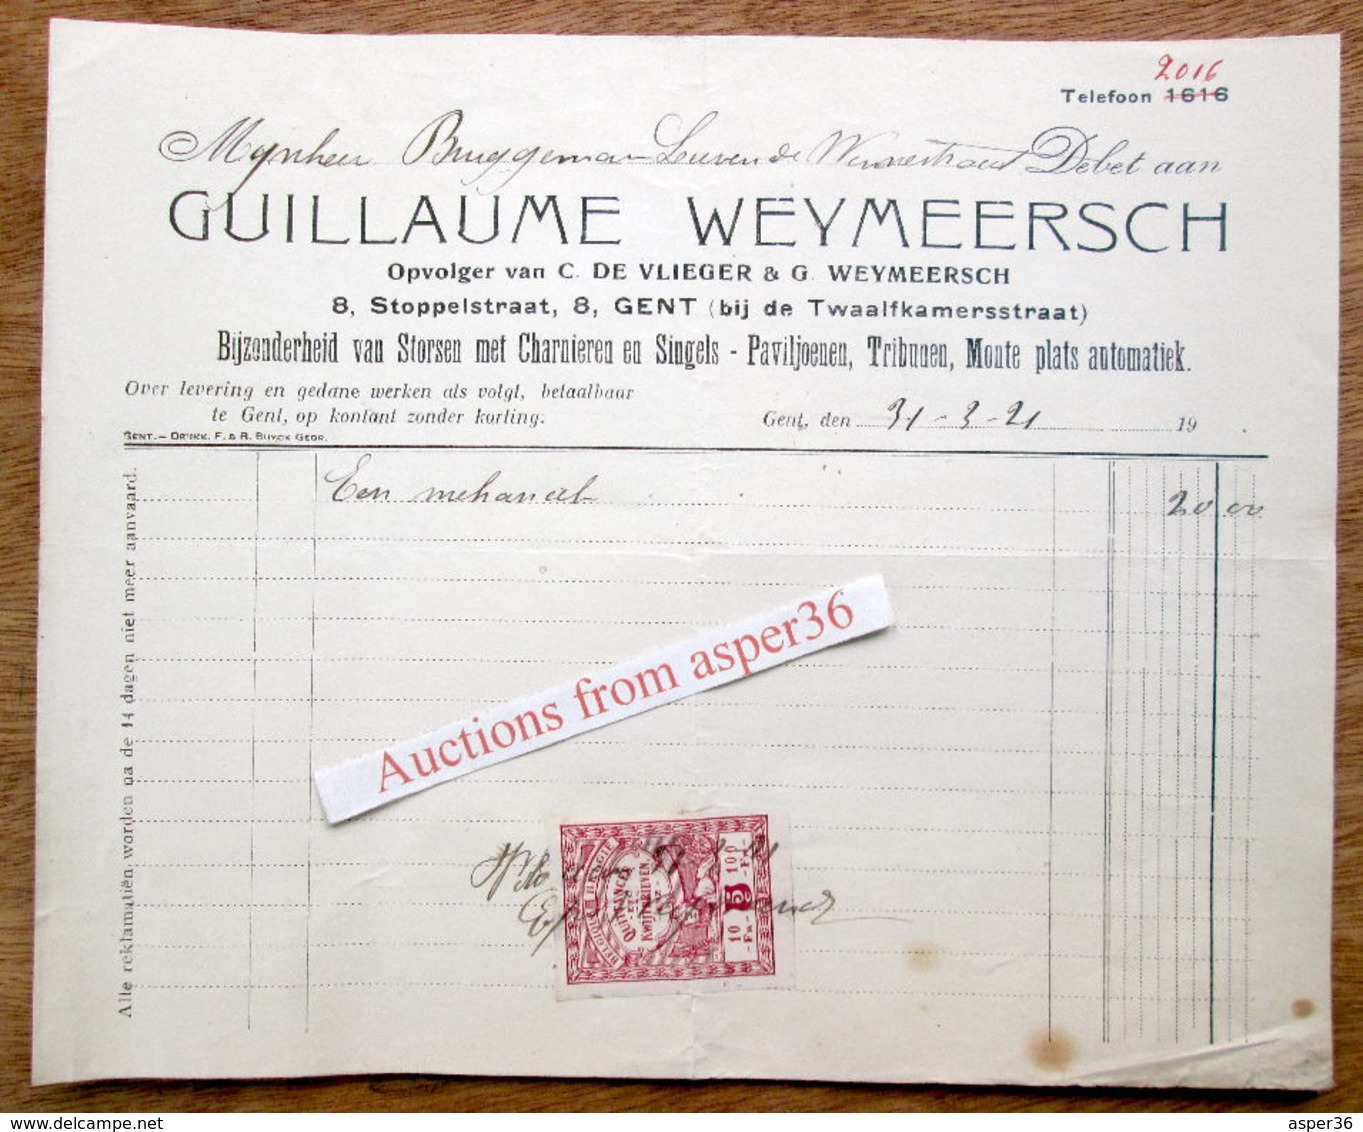 2016
Telefoon 1616
Mynheer Bruggeman Debet aan
GUILLAUME WEYMEERSCH
Opvolger van C. DE VLIEGER & G. WEYMEERSCH
8, Stoppelstraat, 8, GENT (bij de Twaalfkamersstraat)
Bijzonderheid van Storsen met Charnieren en Singels - Paviljoenen, Tribunen, Monte plats automatiek.
Over levering en gedane werken als volgt, betaalbaar
te Gent, op kontant zonder korting.
Gent, den 31-3-21 19
GENT.— DRUKK. F. & R. BUYCK GEBR.
Een 20 00
Alle reklamatiën worden na de 14 dagen niet meer aanvaard.
Auctions from asper36
BELGIQUE BELGIE
QUITTANCES
ETC
KWIJTBRIEVEN
ENZ
10 5 100
-FR- -FR-
delcampe.net
asper36